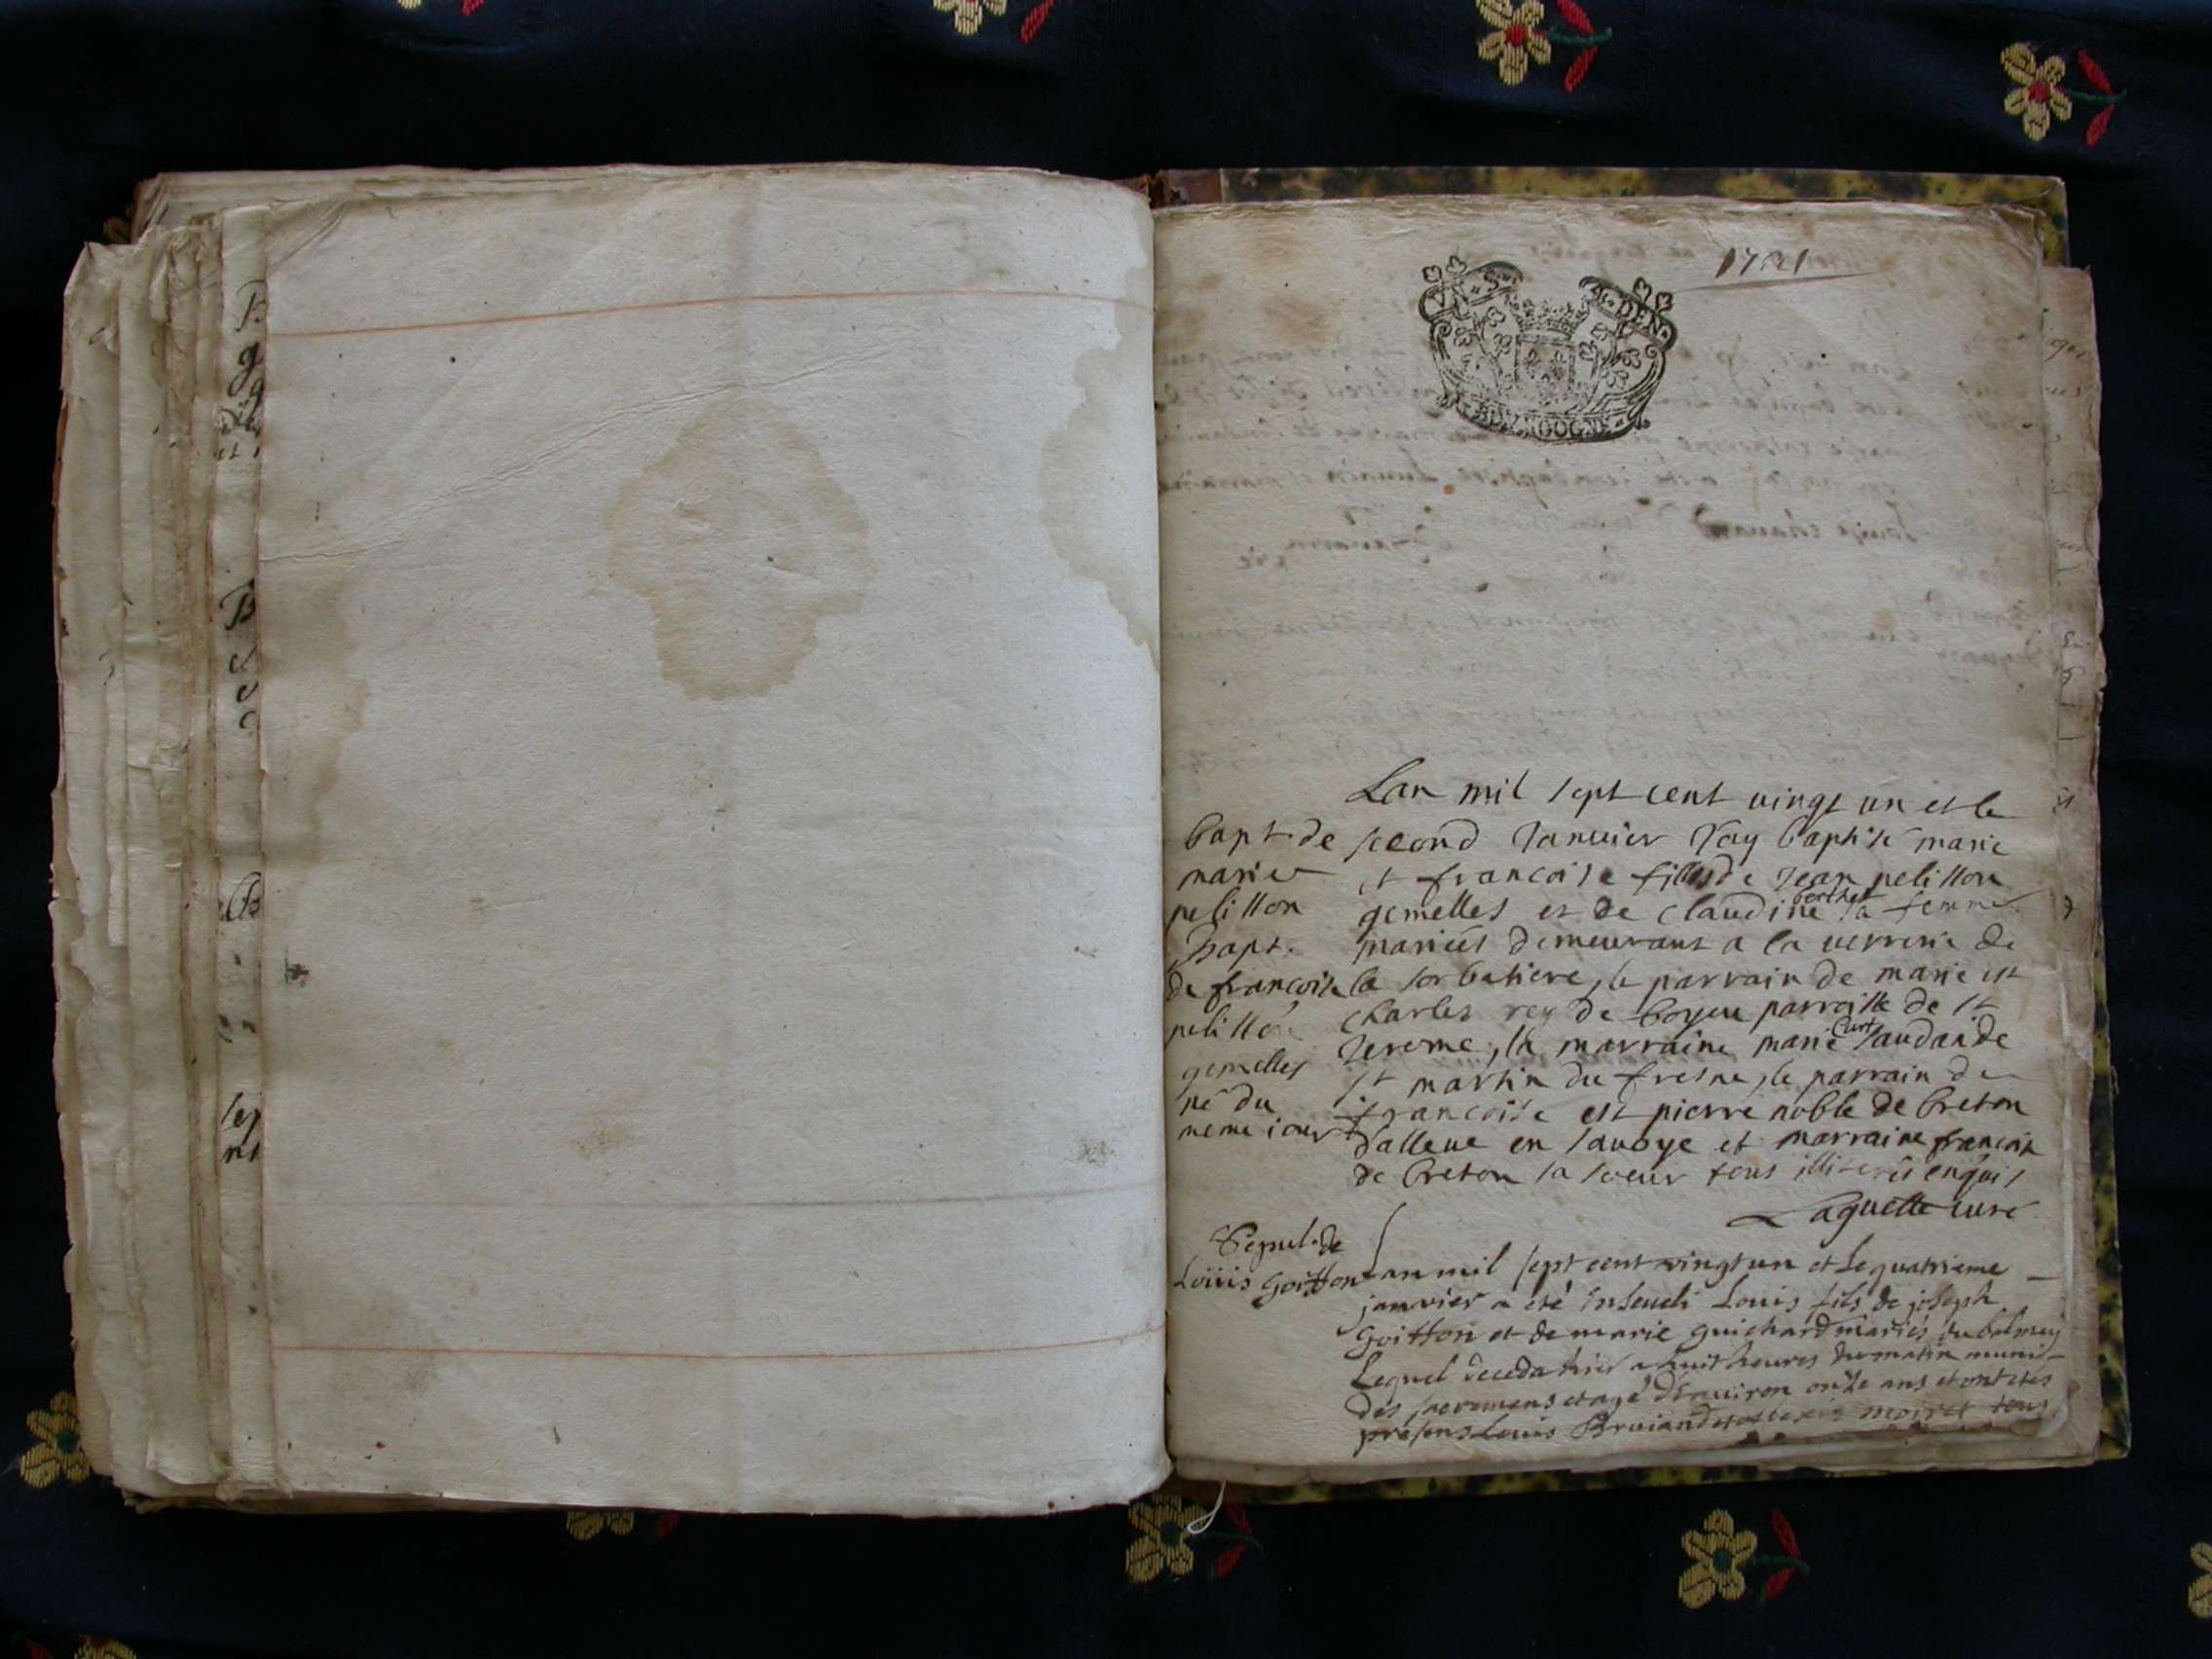 1721
VX S DEN
BOURGOGNE
Lan mil sept cent vingt un et le
second Janvier Jay baptisé marie
et francoise filles de Jean pelisson
gemelles et de claudine berthet sa femme
mariés demeurant a la verrerie de
la sorbatiere, le parrain de marie est
charles rey de boyeu parroisse de st
Jerome, la marraine marie curt saudan de
st martin du fresne, le parrain de
francoise est pierre noble de breton
dalleve en savoye et marraine francoise
de breton sa soeur tous illiterés enquis
Laguette curé
bapt de
marie
pelisson
Bapt.
de francoise
pelisson
gemelles
né du
meme iour
Sepul. de
Loüis Goitton
Lan mil sept cent vingt un et le quatrieme
janvier a eté enseveli Louis fils de joseph
Goitton et de marie guichard mariés du balmey
Lequel deceda hier a huit heures du matin muni
des sacremens et agé d'environ onze ans et ont etés
presens Louis Bruiand et moiret tous